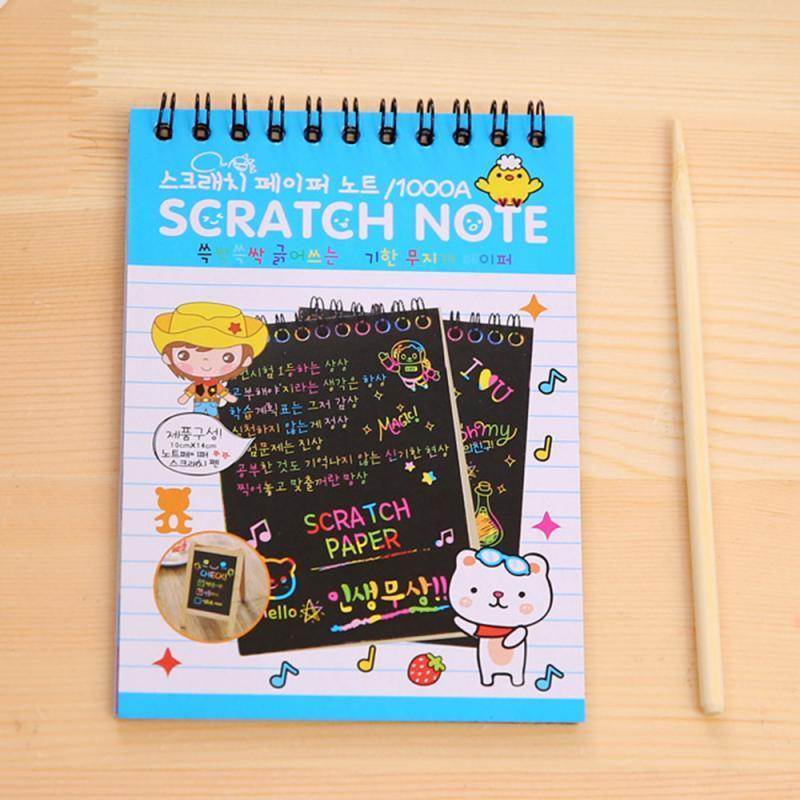 스크래치 페이퍼 노트 /1000A
SCRATCH NOTE
쓱싹쓱싹 긁어쓰는 신기한 무지개 페이퍼
제품구성!
10cm X 14cm
노트페이퍼
스크래치 펜
시험 1등하는 상상
공부해야지라는 생각은 항상
학습계획표는 그저 감상
실천하지 않는게 정상
문제는 진상
공부한 것도 기억나지 않는 신기한 현상
찍어놓고 맞출꺼란 망상
MAGIC!
SCRATCH
PAPER
hello
인생무상!!
I ♥ U
Oh my
친구!
CHECK!